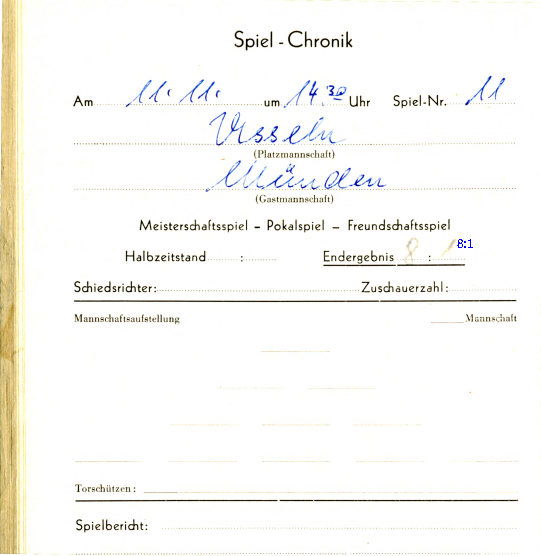 Spiel - Chronik
Am 11. 11. um 14.30 Uhr Spiel-Nr. 11
Usseln
(Platzmannschaft)
Münden
(Gastmannschaft)
Meisterschaftsspiel – Pokalspiel – Freundschaftsspiel
Halbzeitstand : Endergebnis 8 : 1 8:1
Schiedsrichter: Zuschauerzahl:
Mannschaftsaufstellung Mannschaft
Torschützen:
Spielbericht: